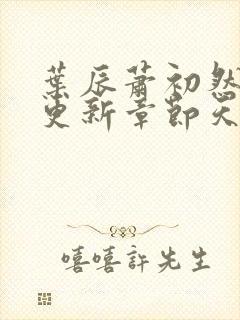 葉辰蕭初然
更新章節天
嘻嘻許先生